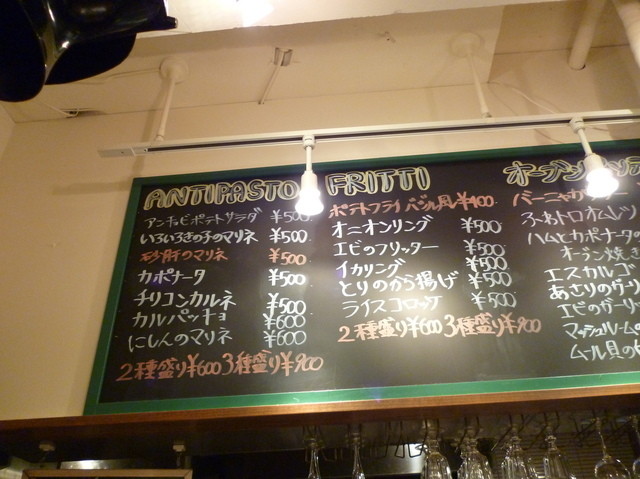 ANTIPASTO
アンチョビポテトサラダ ¥500
いろいろきの子のマリネ ¥500
砂肝のマリネ ¥500
カポナータ ¥500
チリコンカルネ ¥500
カルパッチョ ¥600
にしんのマリネ ¥600
2種盛り¥600 3種盛り¥900
FRITTI
ポテトフライ バジル風 ¥400
オニオンリング ¥500
エビのフリッター ¥500
イカリング ¥500
とりのから揚げ ¥500
ライスコロッケ ¥500
2種盛り¥600 3種盛り¥900
オーブン
バーニャカ
ふわトロオムレツ
ハムとカポナータの
オーブン焼き
エスカルゴ
あさりのサリ
エビのガーリ
マッシュルームの
ムール貝の